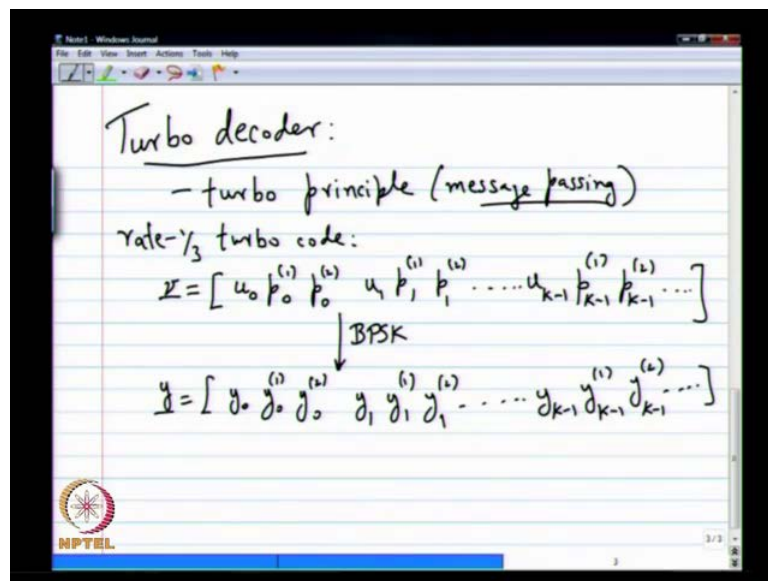 Note1 - Windows Journal
File Edit View Insert Actions Tools Help
Turbo decoder:
- turbo principle (message passing)
rate-1/3 turbo code:
v = [ u₀ p₀⁽¹⁾ p₀⁽²⁾ u₁ p₁⁽¹⁾ p₁⁽²⁾ ..... u_{k-1} p_{k-1}⁽¹⁾ p_{k-1}⁽²⁾ ... ]
↓ BPSK
y = [ y₀ y₀⁽¹⁾ y₀⁽²⁾ y₁ y₁⁽¹⁾ y₁⁽²⁾ ..... y_{k-1} y_{k-1}⁽¹⁾ y_{k-1}⁽²⁾ ... ]
NPTEL
3/3
3